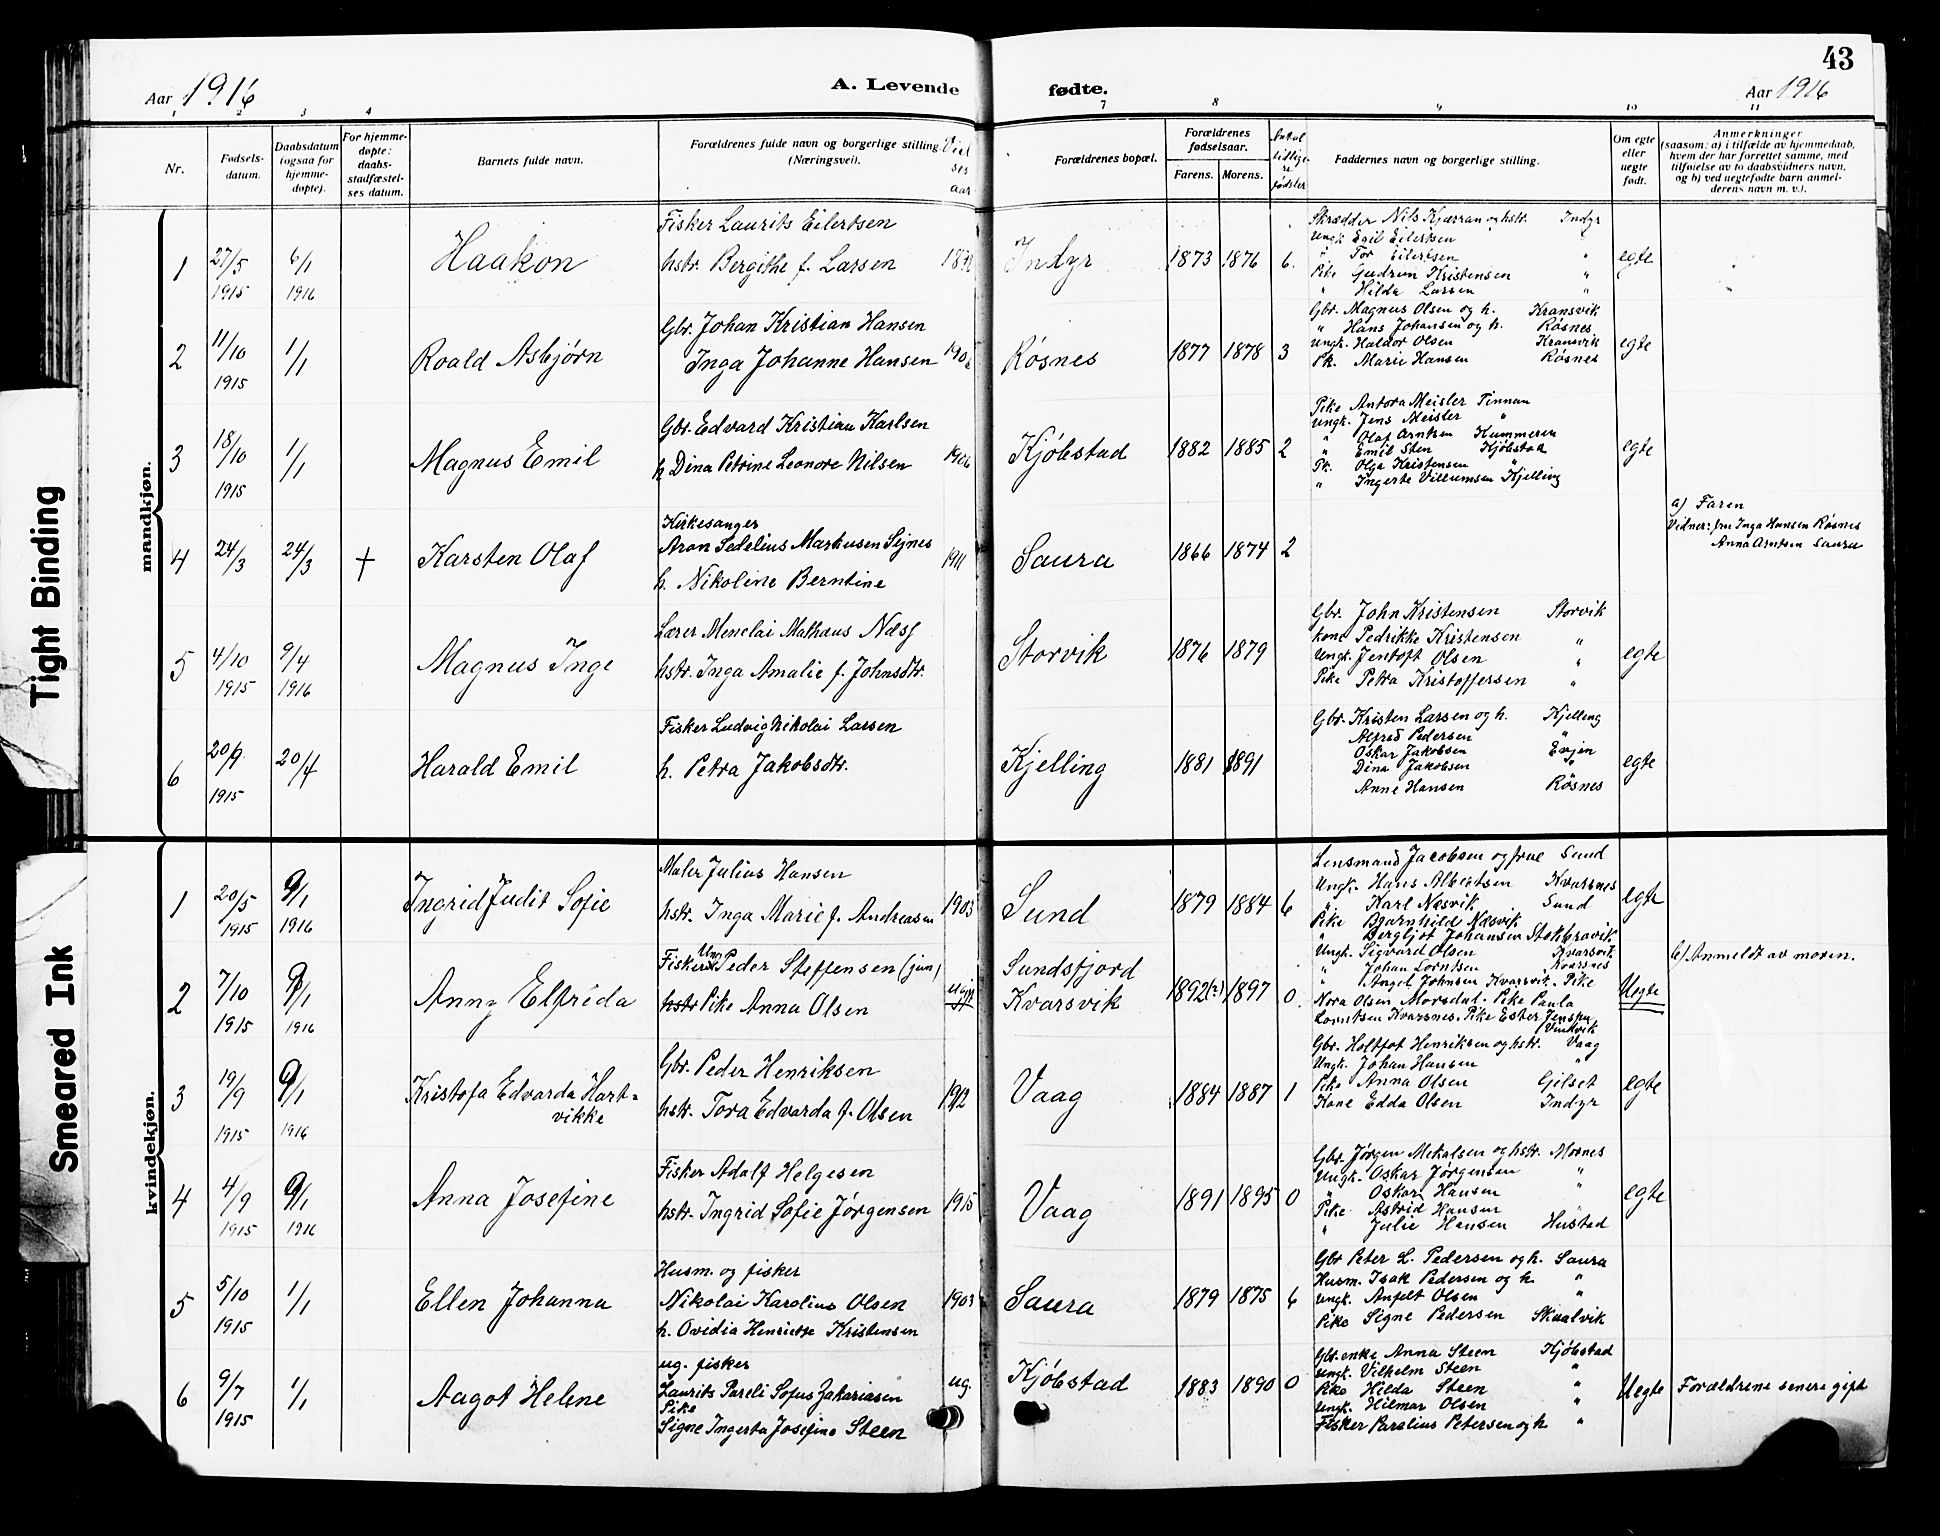 Tight Binding
Smeared Ink
43
Aar 1916
A. Levende
fødte.
Aar 1916
1 2 3 4
7 8 9 10 11
Nr.
Fødsels-
datum.
Daabsdatum
(ogsaa for
hjemme-
døpte).
For hjemme-
døpte:
daabs-
stadfæstel-
ses datum.
Barnets fulde navn.
Forældrenes fulde navn og borgerlige stilling.
(Næringsvei).
Viel
ses
aar
Forældrenes bopæl.
Forældrenes
fødselsaar.
Farens. Morens.
Antal
tidlige-
re
fødsler
Faddernes navn og borgerlige stilling.
Om egte
eller
uegte
født.
Anmerkninger
(saasom: a) i tilfælde av hjemmedaab,
hvem der har forrettet samme, med
tilføielse av to daabsvidners navn,
og b) ved uegtefødte barn anmel-
derens navn m. v.).
mandkjøn.
1
27/5
1915
6/1
1916
Haakon
Fisker Laurits Eilertsen
hstr. Bergithe f. Larsen
Indyr
1873 1876 6.
Skrædder Nils Kjærran og hstr. Indyr
Ungk Egil Eilertsen "
" Tor Eilertsen "
Pike Gudrun Kristensen "
" Hilda Larsen "
egte
2
11/10
1915
1/1
Roald Asbjørn
Gbr. Johan Kristian Hansen
Inga Johanne Hansen
Røsnes
1877 1878 3
Gbr. Magnus Olsen og h. Kransvik
" Hans Johansen og h. Røsnes
Ungk. Haldor Olsen Kransvik
Pk. Marie Hansen Røsnes
egte
3
18/10
1915
1/1
Magnus Emil
Gbr. Edvard Kristian Karlsen
h Dina Petrine Leonore Nilsen
1906
Kjøbstad
1882 1885 2
Pike Antora Meisler Finnan
Ungk. Jens Meisler "
" Olaf Arntsen
" Emil Sten Kjøbstad
Pk. Olga Kristensen "
" Ingerte Villumsen Kjelling
egte
4
24/3
24/3
†
Karsten Olaf
Kirkesanger
Aron Sedelius Markusen Sejnes
h. Nikoline Berntine
1911
Saura
1866 1874 2
a) Faren
Vidner: fru Inga Hansen Røsnes
Anna Arntsen Saura
5
4/10
1915
9/4
1916
Magnus Inge
Lærer Menelai Mathæus Næss
hstr. Inga Amalie f. Johnsdtr.
Storvik
1876 1879
Gbr. John Kristensen Storvik
kone Pedrikke Kristensen "
Ungk. Jentoft Olsen "
Pike Petra Kristoffersen "
egte
6
20/9
1915
20/4
Harald Emil
Fisker Ludvig Nikolai Larsen
h. Petra Jakobsdtr.
Kjelling
1881 1891
Gbr. Kristen Larsen og h. Kjelling
Alfred Pedersen "
Oskar Jakobsen Evjen
Dina Jakobsen "
Anne Hansen Røsnes
egte
kvindekjøn.
1
20/5
1915
9/1
1916
Ingrid Judit Sofie
Maler Julius Hansen
hstr. Inga Marie f. Andreasen
1903
Sund
1879 1884 6
Lensmand Jacobsen og frue Sund
Ungk. Hans Albertsen Kvarsnes
" Karl Næsvik Sund
Pike Bjarnhild Næsvik
" Bergljot Johansen
egte
2
7/10
1915
9/1
1916
Anna Elfrida
Fisker Ung. Peder Steffensen (jun)
hstr Pike Anna Olsen
Ugift
Sundsfjord
Kvarsvik
1892(?) 1897 0.
Ungk. Sigvard Olsen Kvarsvik
" Johan Lorntsen Kvarsnes
" Angel Johnsen Kvarsvik. Pike
Nora Olsen Morsdal. Pike Paula
Lorntsen Kvarsnes. Pike Ester
Uegte
b) Anmeldt av moren.
3
19/9
1915
9/1
1916
Kristofa Edvarda Hart-
vikke
Gbr. Peder Henriksen
hstr. Tora Edvarda f. Olsen
1912
Vaag
1884 1887 1
Gbr. Holtfot Henriksen og hstr. Vaag
Ungk. Johan Hansen "
Pike Anna Olsen Gilset
Kone Edda Olsen Indyr
egte
4
4/9
1915
9/1
1916
Anna Josefine
Fisker Adolf Helgesen
hstr. Ingrid Sofie Jørgensen
1915
Vaag
1891 1895 0
Gbr. Jørgen Mekalsen og hstr. Mornes
Ungk. Oskar Jørgensen "
" Oskar Hansen "
Pike Astrid Hansen "
" Julie Hansen Hustad
egte
5
5/10
1915
1/1
Ellen Johanna
Husm. og fisker
Nikolai Karolius Olsen
h. Ovidia Henriette Kristensen
1903
Saura
1879 1875 6
Gbr Peter L. Pedersen og h. Saura
Husm. Isak Pedersen og h. "
Ungk. Anfelt Olsen "
Pike Signe Pedersen Skaalvik
6
9/7
1915
1/1
Aagot Helene
ug. fisker
Laurits Pareli Sofus Zakariasen
Pike
Signe Ingerta Josefine Steen
ug.
Kjøbstad
1883 1890 0
Gbr. enke Anna Steen Kjøbstad
Ungk. Vilhelm Steen "
Pike Hilda Steen "
Ungk. Hilmar Olsen "
Fisker Parelius Petersen og h "
Uegte
Forældrene senere gift